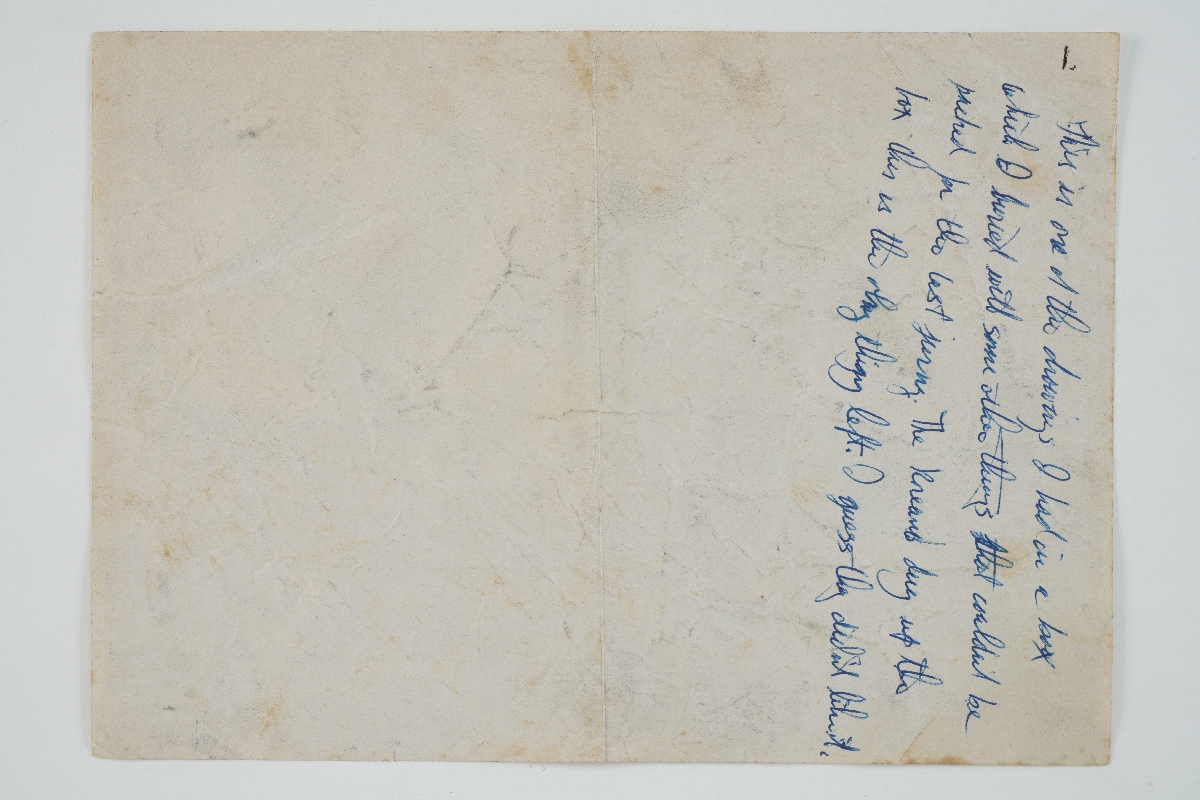 1.
This is one of the drawings I had in a box
which I buried with some other things that couldn't be
packed for the last journey. The Koreans dug up the
box this is the only thing left. I guess they didn't like it.